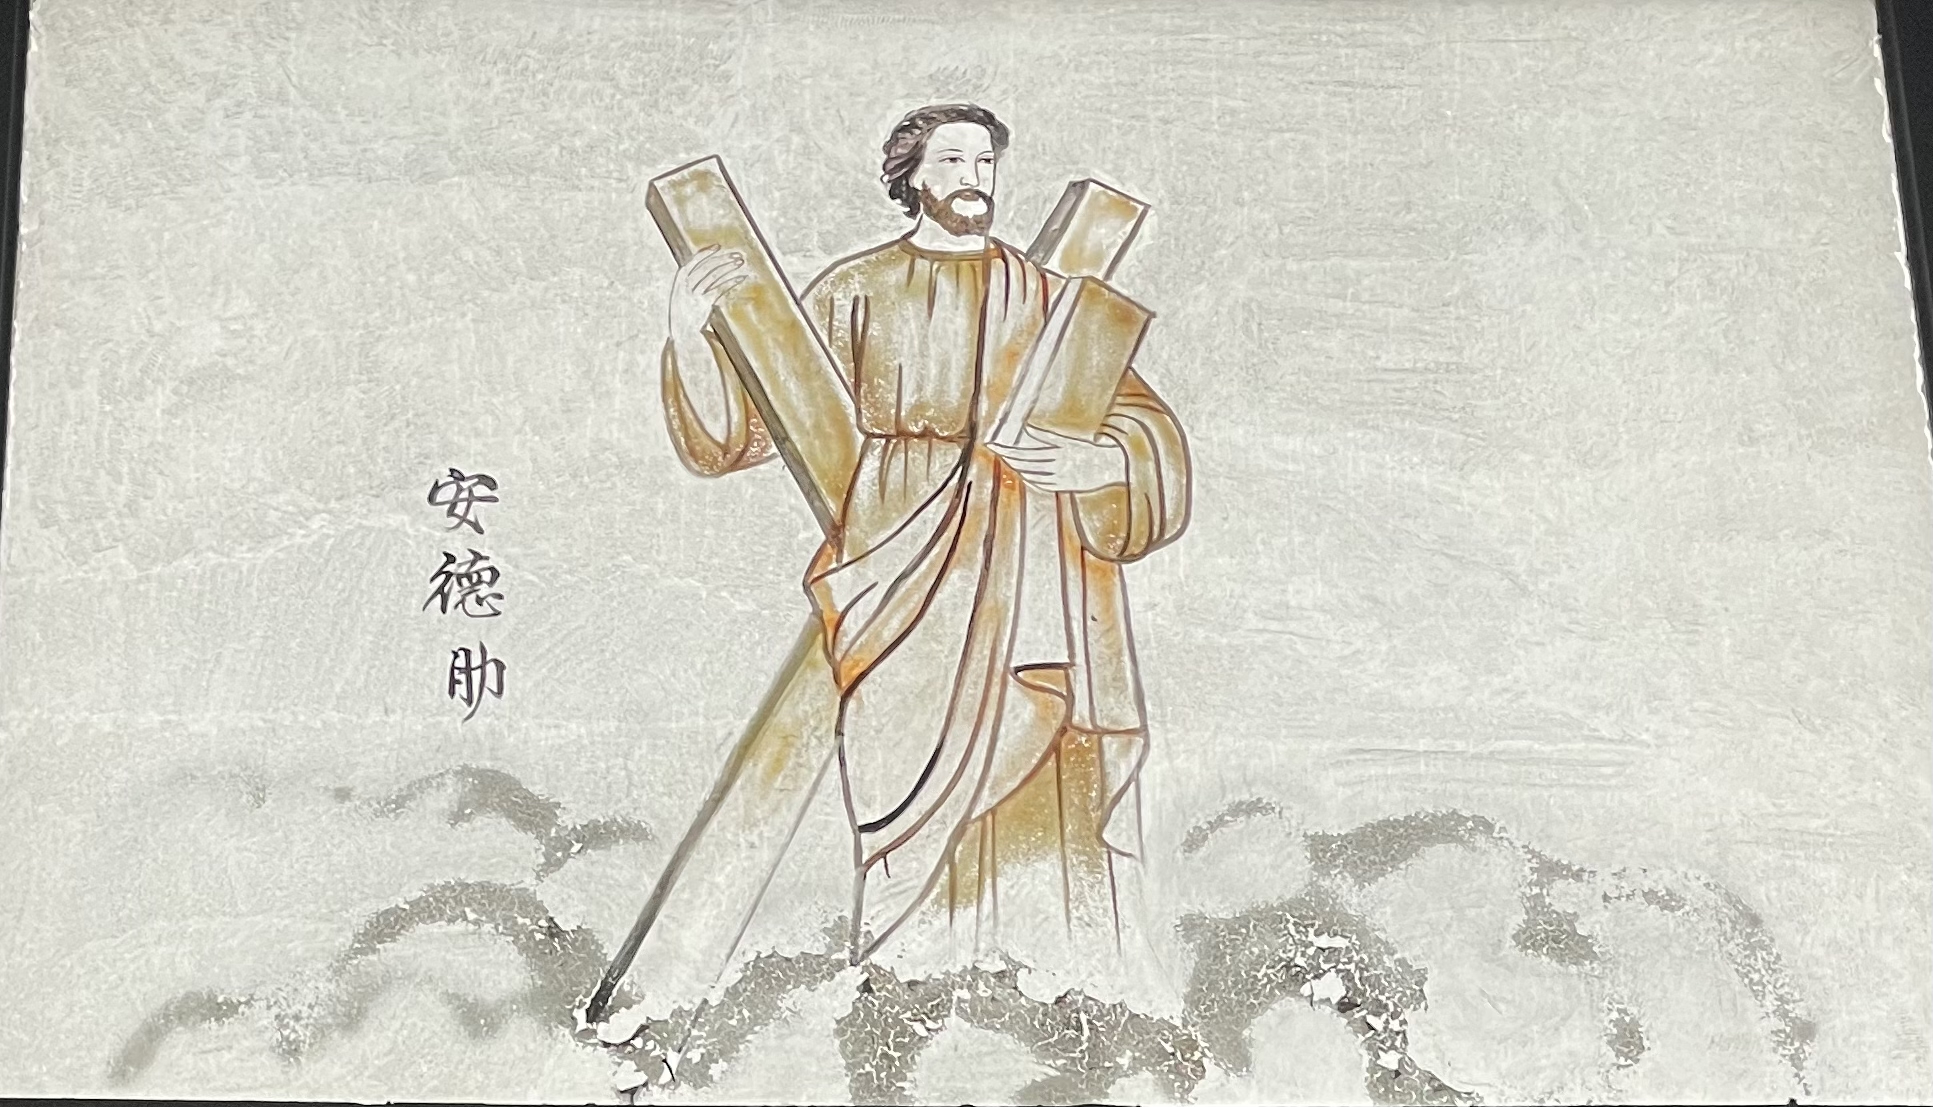 安德肋